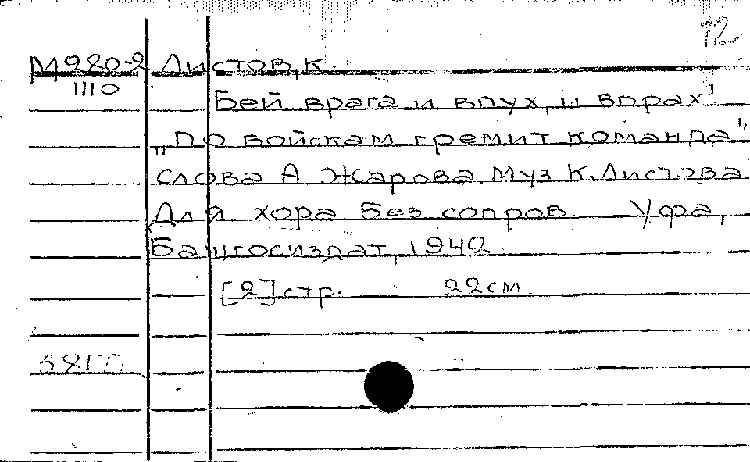 12
М980-2 Листов, К.
1110
Бей врага и впух, и впрах!
„По войскам гремит команда",
слова А Жарова Муз К. Листова
Для хора без сопров. Уфа,
Башгосиздат, 1942.
[2] стр. 22 см.